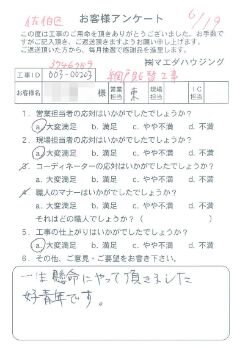 佐伯区 お客様アンケート 6/19
この度は工事のご用命を頂きありがとうございました。お手数で
すがご記入頂き、ご返送頂きますようお願い申し上げます。
ご返送頂いた方から、毎月抽選で感謝品を進呈します。
㈱マエダハウジング
工事ID 003-00203 網戸貼替工事
お客様名 様 営業担当 東 現場担当 IC担当
1. 営業担当者の応対はいかがでしたでしょうか?
a. 大変満足 b. 満足 c. やや不満 d. 不満
2. 現場担当者の応対はいかがでしたでしょうか?
a. 大変満足 b. 満足 c. やや不満 d. 不満
3. コーディネーターの応対はいかがでしたでしょうか?
a. 大変満足 b. 満足 c. やや不満 d. 不満
4. 職人のマナーはいかがでしたでしょうか?
a. 大変満足 b. 満足 c. やや不満 d. 不満
それはどの職人でしょうか? ( )
5. 工事の仕上がりはいかがでしたでしょうか?
a. 大変満足 b. 満足 c. やや不満 d. 不満
6. その他、ご意見・ご要望をお書き下さい。
一生懸命にやって頂きました
好青年です。